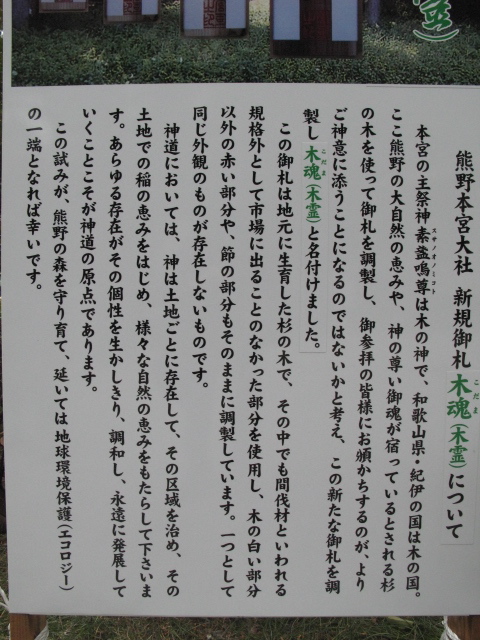 霊
熊野本宮大社 新規御札 木魂(木霊)について
こだま
本宮の主祭神素盞嗚尊は木の神で、和歌山県・紀伊の国は木の国。
スサノオノミコト
ここ熊野の大自然の恵みや、神の尊い御魂が宿っているとされる杉
の木を使って御札を調製し、御参拝の皆様にお頒かちするのが、より
ご神意に添うことになるのではないかと考え、この新たな御札を調
製し木魂(木霊)と名付けました。
こだま
この御札は地元に生育した杉の木で、その中でも間伐材といわれる
規格外として市場に出ることのなかった部分を使用し、木の白い部分
以外の赤い部分や、節の部分もそのままに調製しています。一つとして
同じ外観のものが存在しないものです。
神道においては、神は土地ごとに存在して、その区域を治め、その
土地での稲の恵みをはじめ、様々な自然の恵みをもたらして下さいま
す。あらゆる存在がその個性を生かしきり、調和し、永遠に発展して
いくことこそが神道の原点であります。
この試みが、熊野の森を守り育て、延いては地球環境保護(エコロジー)
の一端となれば幸いです。